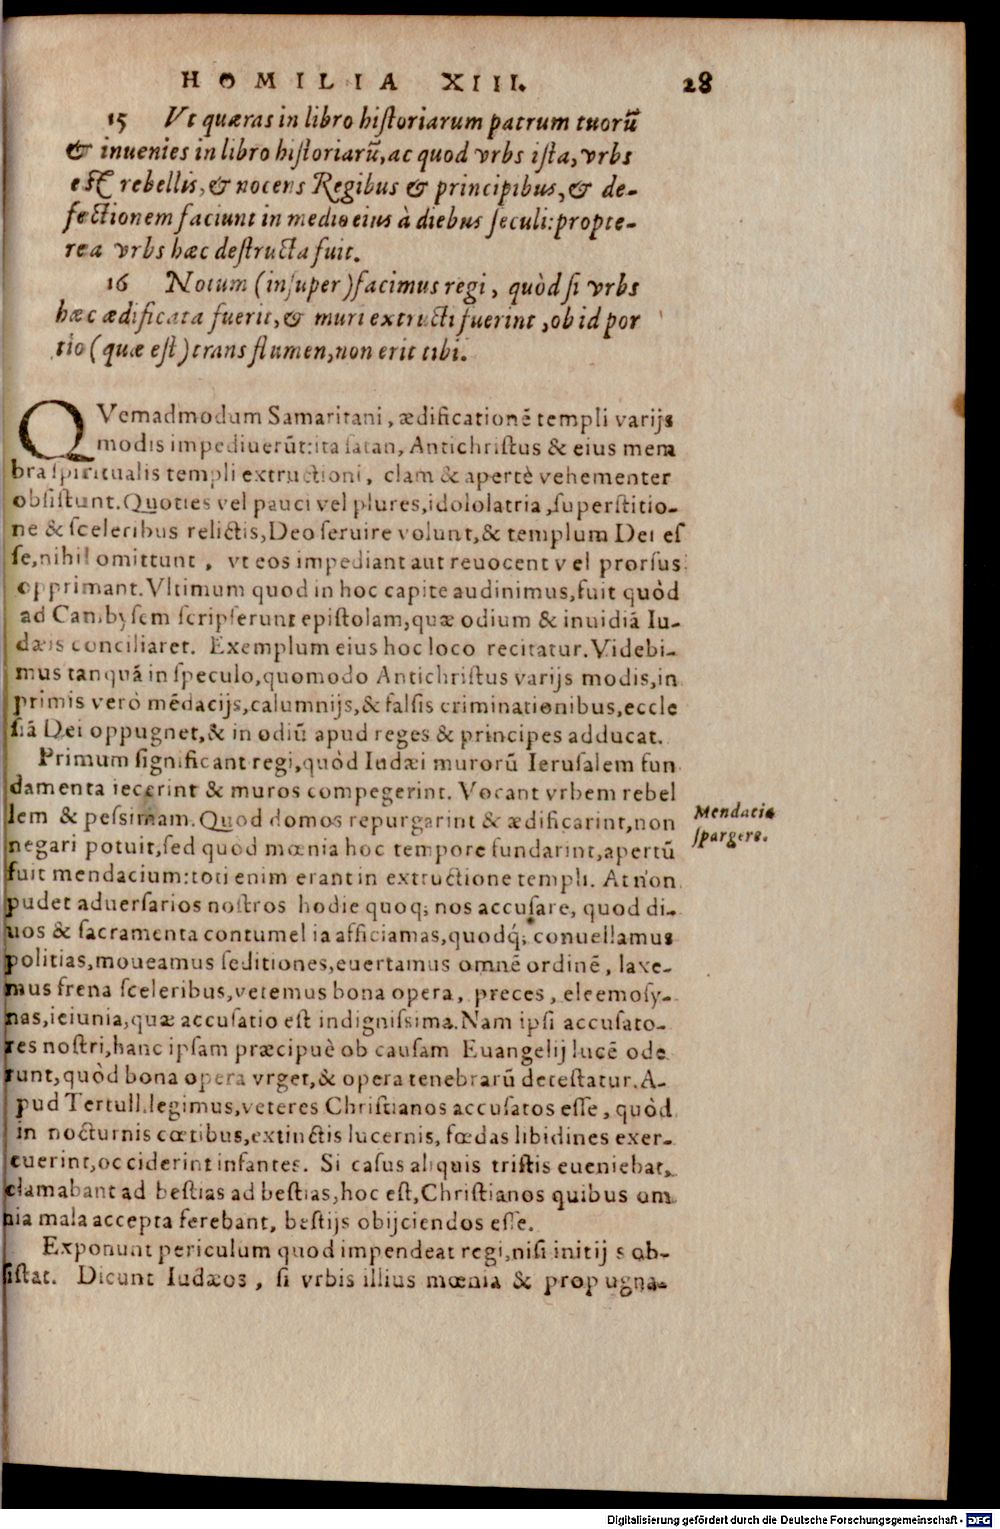 HOMILIA XIII. 28
15 Vt quæras in libro historiarum patrum tuorũ
& inuenies in libro historiarũ, ac quod vrbs ista, vrbs
est rebellis, & nocens Regibus & principibus, & de-
fectionem faciunt in medio eius à diebus seculi: propte-
rea vrbs hæc destructa fuit.
16 Notum (insuper) facimus regi, quòd si vrbs
hæc ædificata fuerit, & muri extructi fuerint, ob id por
tio (quæ est) trans flumen, non erit tibi.
QVemadmodum Samaritani, ædificationẽ templi varijs
modis impediuerũt: ita satan, Antichristus & eius mem
bra spiritualis templi extructioni, clam & apertè vehementer
obsistunt. Quoties vel pauci vel plures, idololatria, superstitio-
ne & sceleribus relictis, Deo seruire volunt, & templum Dei es
se, nihil omittunt, vt eos impediant aut reuocent vel prorsus
opprimant. Vltimum quod in hoc capite audinimus, fuit quòd
ad Cambysem scripserunt epistolam, quæ odium & inuidiã Iu-
dæis conciliaret. Exemplum eius hoc loco recitatur. Videbi-
mus tanquã in speculo, quomodo Antichristus varijs modis, in
primis verò mẽdacijs, calumnijs, & falsis criminationibus, eccle
siã Dei oppugnet, & in odiũ apud reges & principes adducat.
Primum significant regi, quòd Iudæi murorũ Ierusalem fun
damenta iecerint & muros compegerint. Vocant vrbem rebel
lem & pessimam. Quod domos repurgarint & ædificarint, non
negari potuit, sed quòd mœnia hoc tempore fundarint, apertũ
fuit mendacium: toti enim erant in extructione templi. At non
pudet aduersarios nostros hodie quoq; nos accusare, quod di-
uos & sacramenta contumelia afficiamus, quodq́; conuellamus
politias, moueamus seditiones, euertamus omnẽ ordinẽ, laxe-
mus frena sceleribus, vetemus bona opera, preces, eleemosy-
nas, ieiunia, quæ accusatio est indignissima. Nam ipsi accusato-
res nostri, hanc ipsam præcipuè ob causam Euangelij lucẽ ode
runt, quòd bona opera vrget, & opera tenebrarũ detestatur. A-
pud Tertull. legimus, veteres Christianos accusatos esse, quòd
in nocturnis cœtibus, extinctis lucernis, fœdas libidines exer-
cuerint, occiderint infantes. Si casus aliquis tristis eueniebat,
clamabant ad bestias ad bestias, hoc est, Christianos quibus om
nia mala accepta ferebant, bestijs obijciendos esse.
Exponunt periculum quod impendeat regi, nisi initijs ob-
sistat. Dicunt Iudæos, si vrbis illius mœnia & propugna-
Mendacia
spargere.
Digitalisierung gefördert durch die Deutsche Forschungsgemeinschaft - DFG